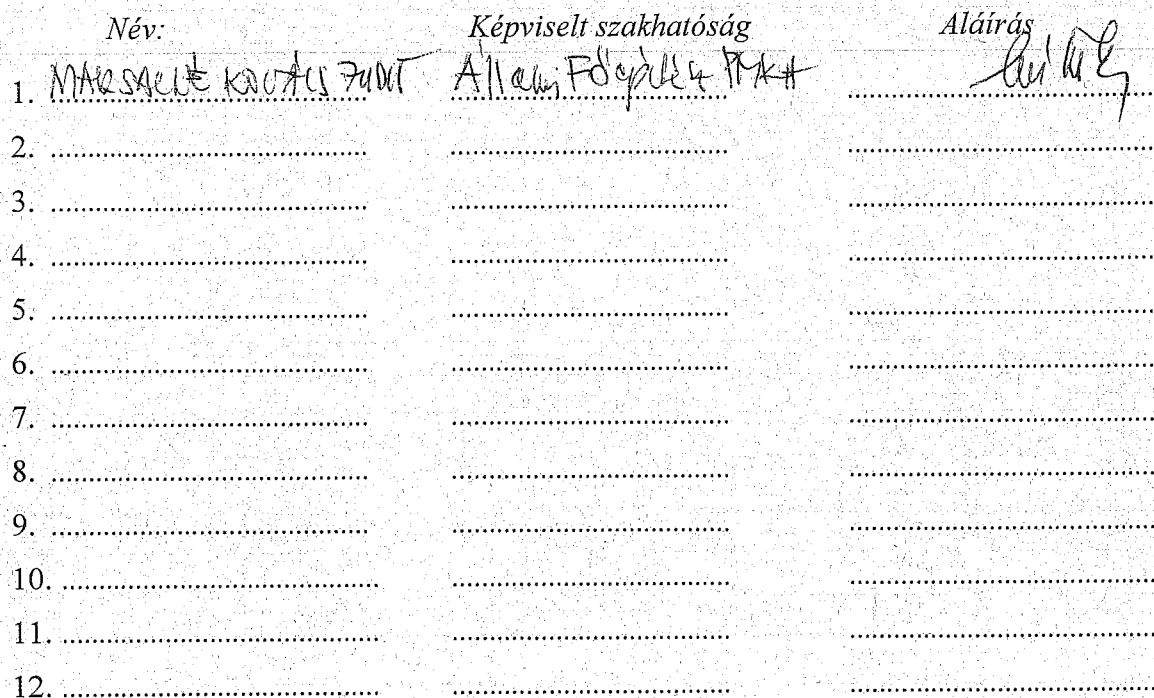 Név: Képviselt szakhatóság Aláírás
1. KOVÁCS JUDIT Állami Főépítész PMKH
2. ...............................................
3. ...............................................
4. ...............................................
5. ...............................................
6. ...............................................
7. ...............................................
8. ...............................................
9. ...............................................
10. ...............................................
11. ...............................................
12. ...............................................